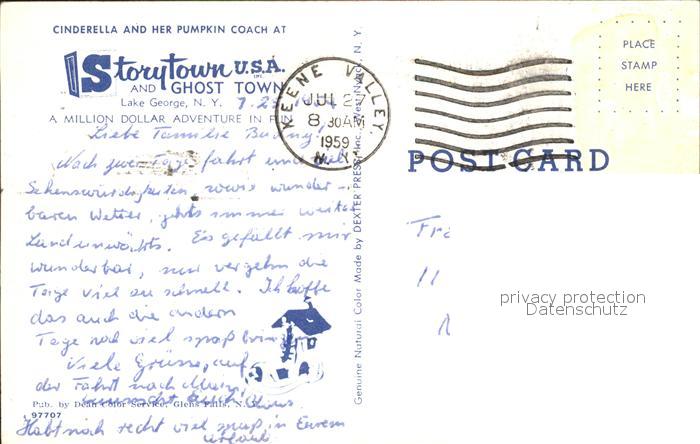 CINDERELLA AND HER PUMPKIN COACH AT
Storytown U.S.A.
INC.
AND GHOST TOWN
Lake George, N. Y.
A MILLION DOLLAR ADVENTURE IN FUN
Liebe Familie
Nach zwei Tage fahrt und
Sehenswürdigkeiten, sowie wunder-
baren Wetter, gehts immer weiter
Landeinwärts. Es gefällt mir
wunderbar, nur vergehn die
Tage viel zu schnell. Ich hoffe
das auch die andern
Tage noch viel spaß bringen
Viele Grüsse, auf
der Fahrt nach
Pub. by Dean Color Service, Glens Falls, N.
97707
Habt noch recht viel spaß in Eurem
Urlaub
Genuine Natural Color Made by DEXTER PRESS, Inc., West Nyack, N. Y.
KEENE VALLEY,
JUL 2
8 30 AM
1959
N. Y.
PLACE
STAMP
HERE
POST CARD
privacy protection
Datenschutz